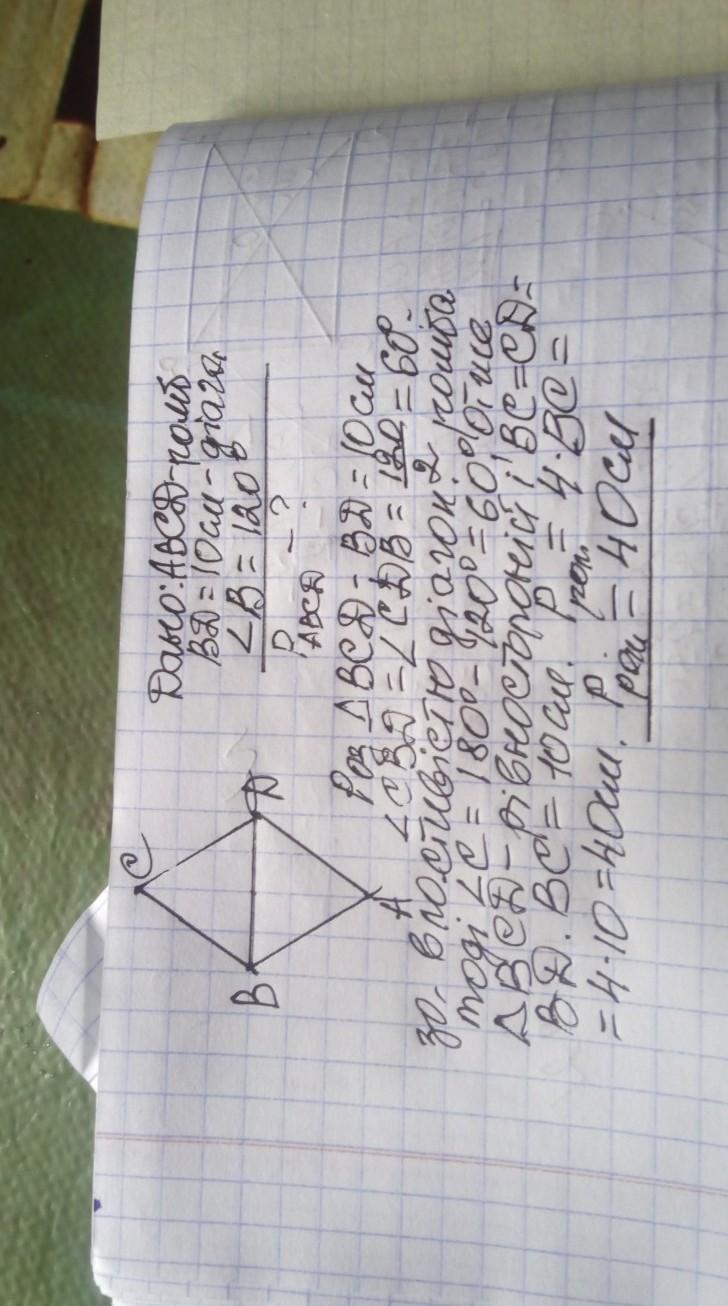 C
B
D
A
Дано: ABCD-ромб
BD = 10см - діаг.
∠B = 120°
P ABCD - ?
Роз △ BCD - BD = 10 см
∠CBD = ∠CDB = 120/2 = 60° -
за властивістю діагоналі ромба
тоді ∠C = 180° - 120° = 60° отже
△ BCD - рівносторонній і BC = CD =
BD. BC = 10см. P ром. = 4·BC =
= 4·10 = 40см. P ром = 40см